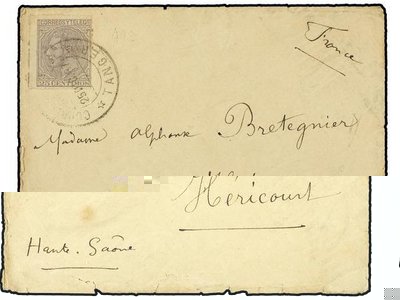 CORREOS Y TELEG
France
TANGER
Madame Alphonse Bretegnier
Héricourt
Haute-Saône